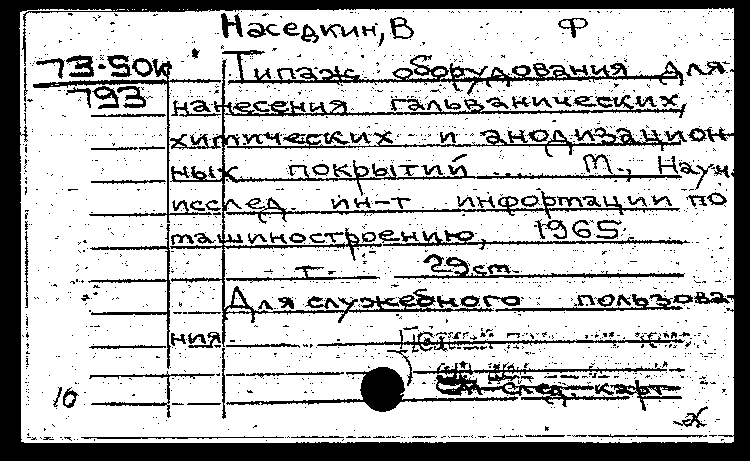 Наседкин, В Ф
73-50к Типаж оборудования для
793 нанесения гальванических,
химических и анодизацион-
ных покрытий .... М., Научн.
исслед. ин-т информации по
машиностроению, 1965.
т. 29 см.
Для служебного пользова-
ния
См след. карт
16